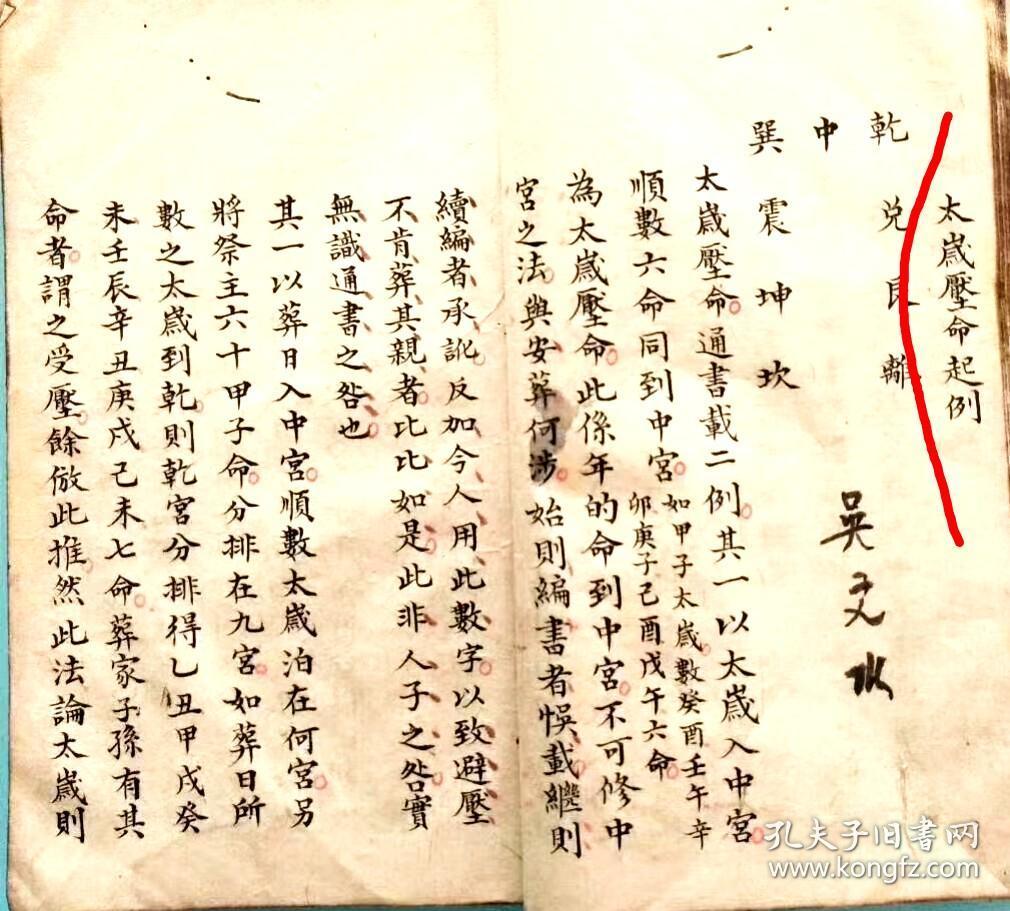 太歲壓命起例
乾 兌 艮 離
中
巽 震 坤 坎
吳文
太歲壓命通書載二例其一以太歲入中宮
順數六命同到中宮如甲子太歲數癸酉壬午辛卯庚子己酉戊午六命
為太歲壓命此係年的命到中宮不可修中
宮之法與安葬何涉始則編書者悞載繼則
續編者承訛反加今人用此數字以致避壓
不肯葬其親者比比如是此非人子之咎實
無識通書之咎也
其一以葬日入中宮順數太歲泊在何宮另
將祭主六十甲子命分排在九宮如葬日所
數之太歲到乾則乾宮分排得乙丑甲戌癸
未壬辰辛丑庚戌己未七命葬家子孫有其
命者謂之受壓餘倣此推然此法論太歲則
孔夫子旧书网
www.kongfz.com